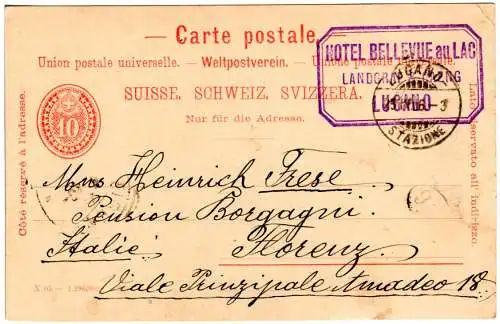 Carte postale.
Union postale universelle. – Weltpostverein. – Unione postale
SUISSE. SCHWEIZ. SVIZZERA.
Nur für die Adresse.
HOTEL BELLEVUE au LAC
LUGANO
LUGANO
STAZIONE
10
Côté réservé à l'adresse.
Lato riservato all' indirizzo.
Mns Heinrich Frese
Pension Borgagni
Italie Florenz
Viale Prinzipale Amadeo 18.